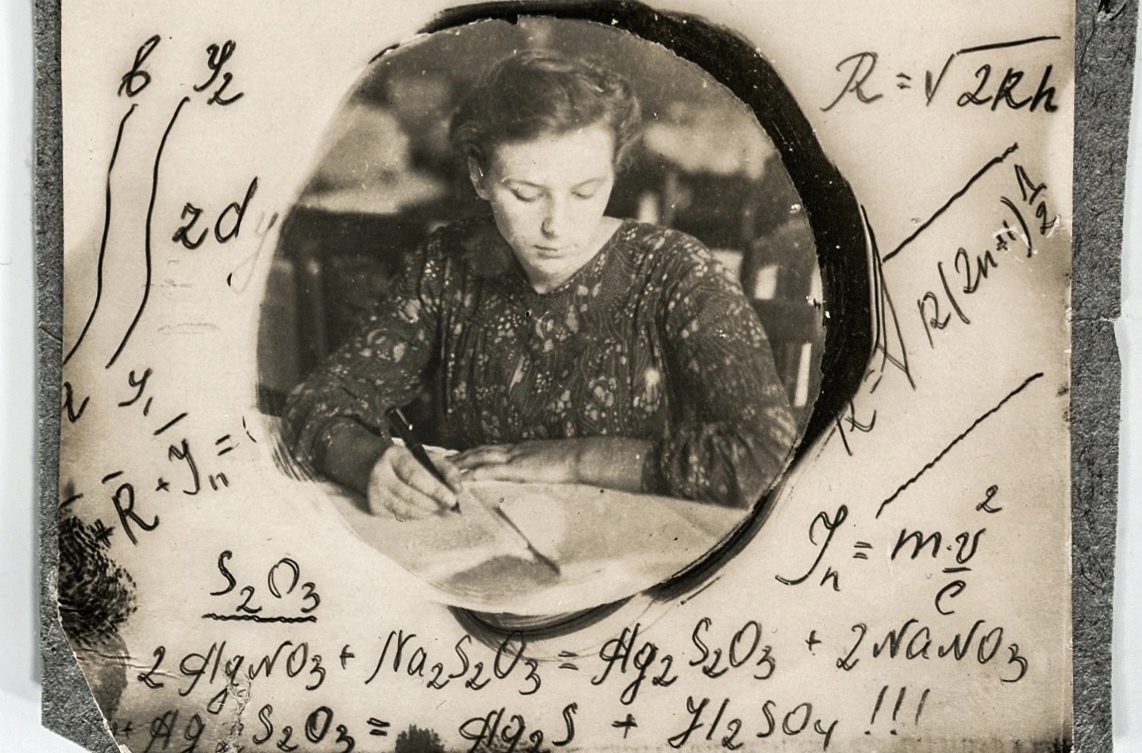 b y₂
R = √2Rh
z d y
R = √R(2n+1)½
y₁
R + Jn =
Jn = m·v²/c
S₂O₃
2AgNO₃ + Na₂S₂O₃ = Ag₂S₂O₃ + 2NaNO₃
+ Ag S₂O₃ = Ag₂S + H₂SO₄ !!!